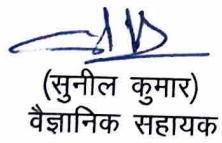 (सुनील कुमार)
वैज्ञानिक सहायक